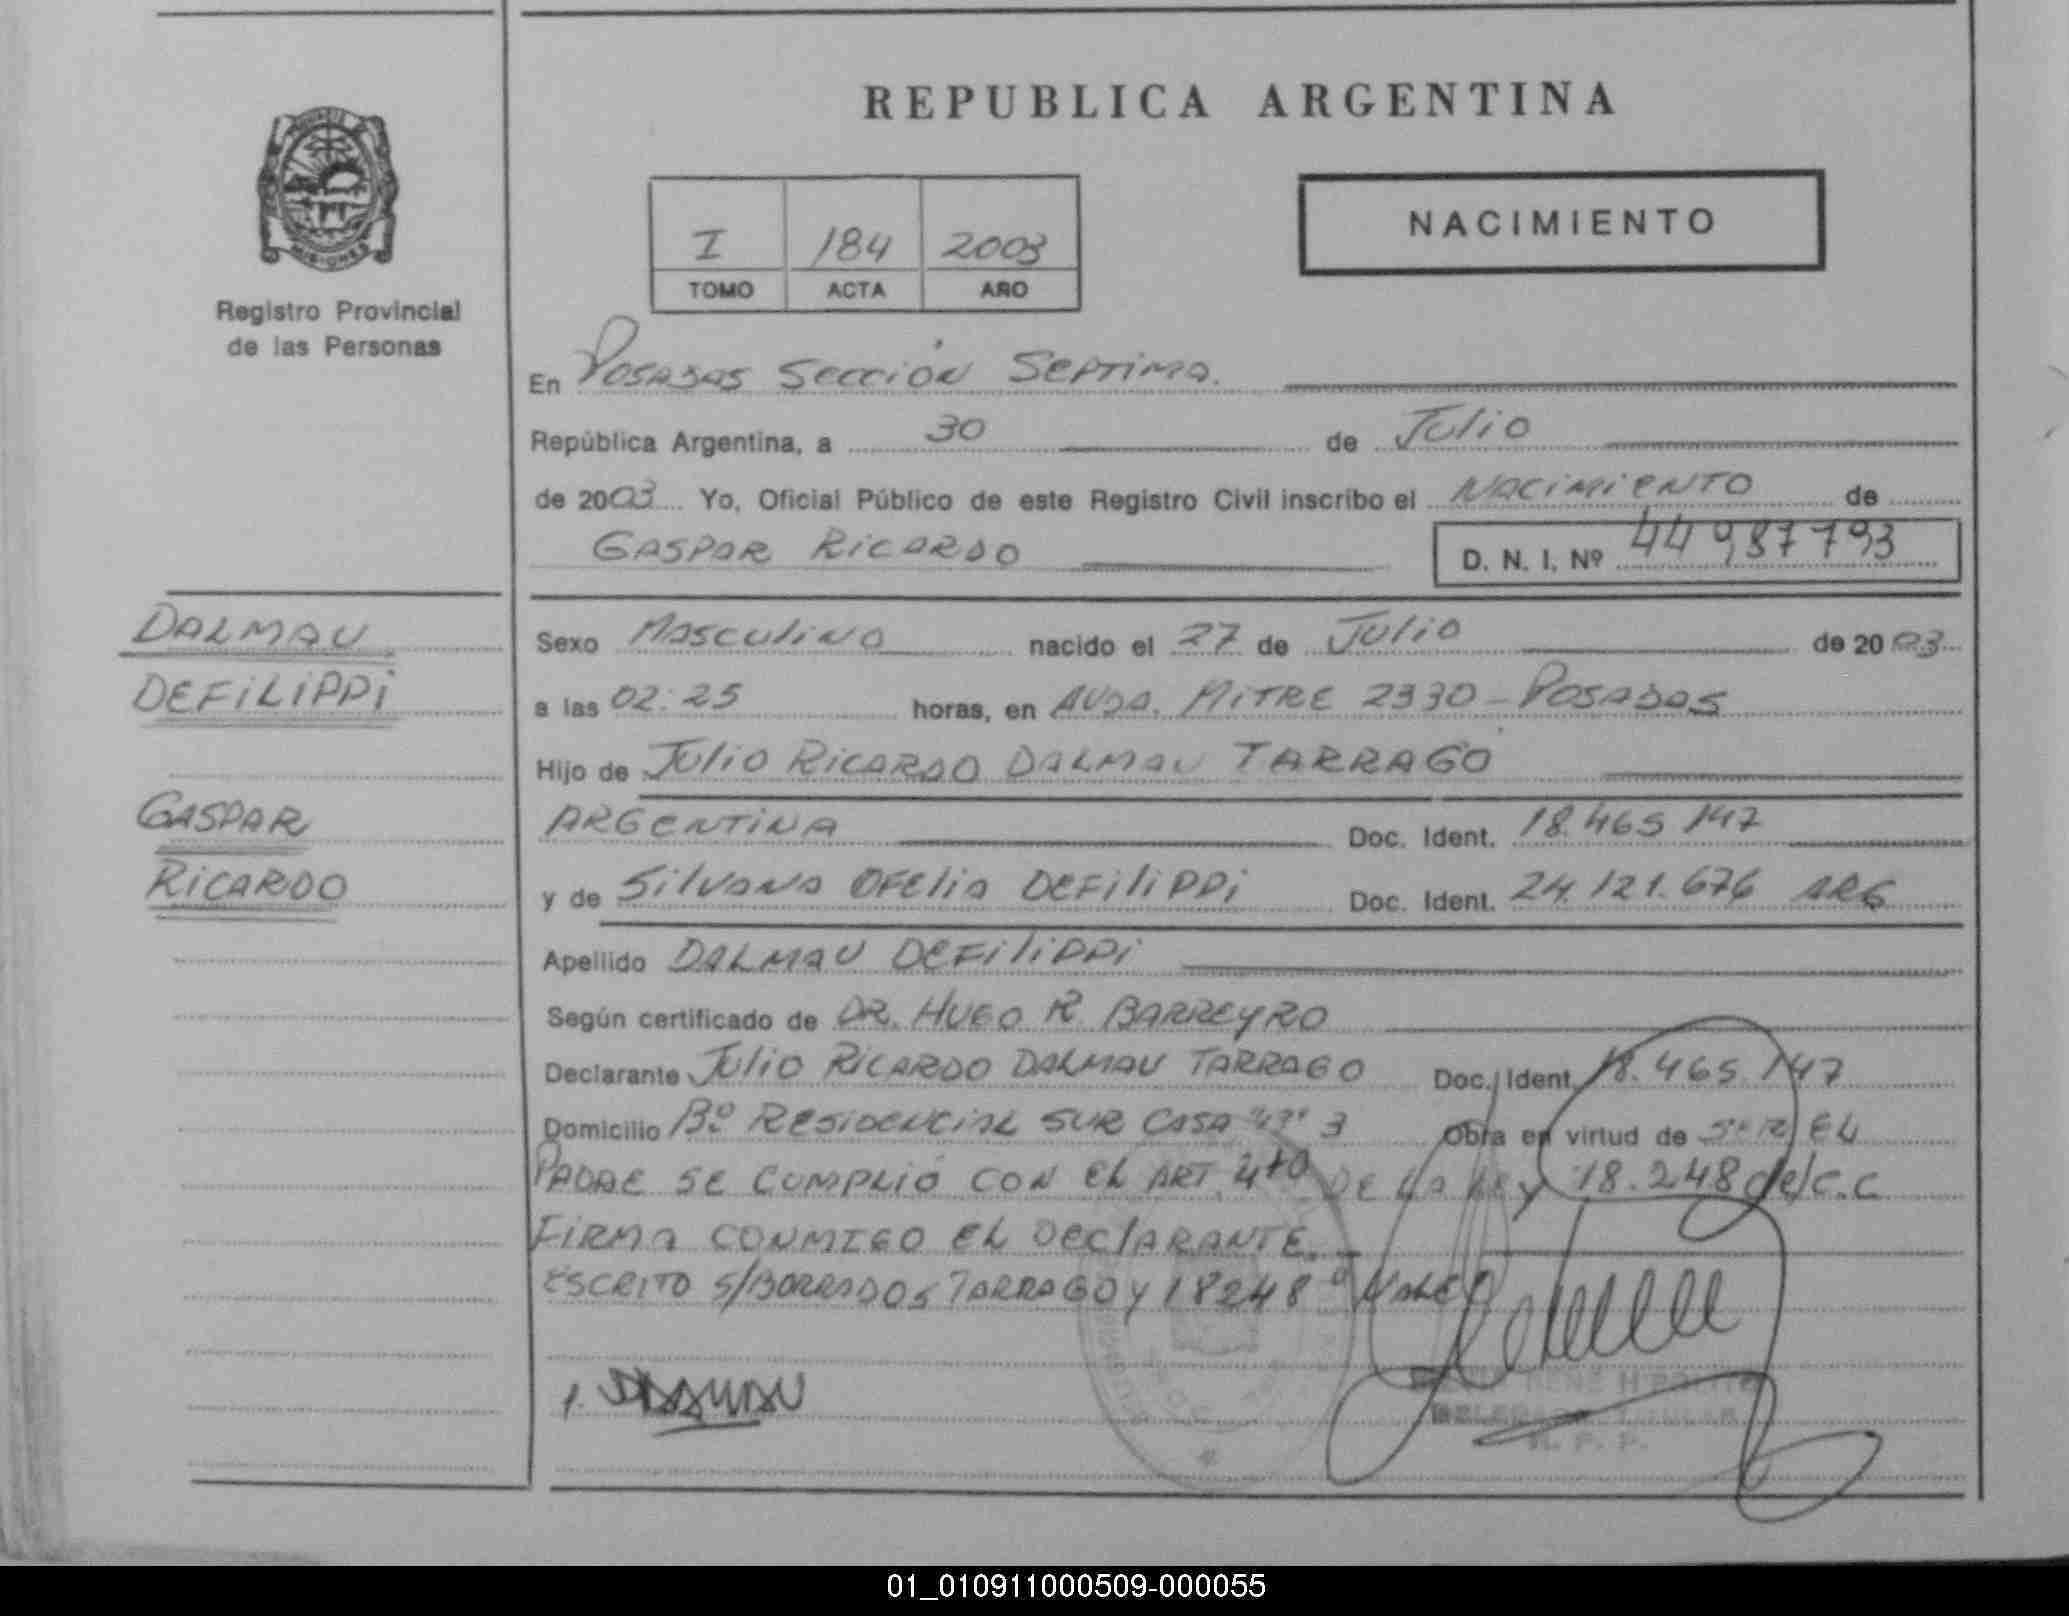 REPUBLICA ARGENTINA
NACIMIENTO
I 184 2003
TOMO ACTA AÑO
MISIONES
Registro Provincial
de las Personas
En Posadas Sección Septima.
República Argentina, a 30 de Julio
de 2003 Yo, Oficial Público de este Registro Civil inscribo el Nacimiento de
GASPAR RICARDO D. N. I. Nº 44987793
DALMAU
DEFILIPPI
GASPAR
RICARDO
Sexo Masculino nacido el 27 de Julio de 2003
a las 02:25 horas, en AVDA. MITRE 2330 - POSADAS
Hijo de Julio Ricardo Dalmau TARRAGÓ
ARGENTINA Doc. Ident. 18.465.147
y de Silvana Ofelia Defilippi Doc. Ident. 24.121.676 ARG
Apellido DALMAU DEFILIPPI
Según certificado de DR. HUGO R. BARREYRO
Declarante Julio RICARDO DALMAU TARRAGO Doc. Ident. 18.465.147
Domicilio Bº RESIDENCIAL SUR CASA Nº 3 Obra en virtud de SER EL
PADRE SE CUMPLIÓ CON EL ART. 4to DE LA LEY 18.248 del C.C
FIRMA CONMIGO EL DECLARANTE.
ESCRITO S/BORRADOS TARRAGO Y 18248 VALE
1. DALMAU
RENE HIPOLITO
DELEGADO TITULAR
R. P. P.
01_010911000509-000055